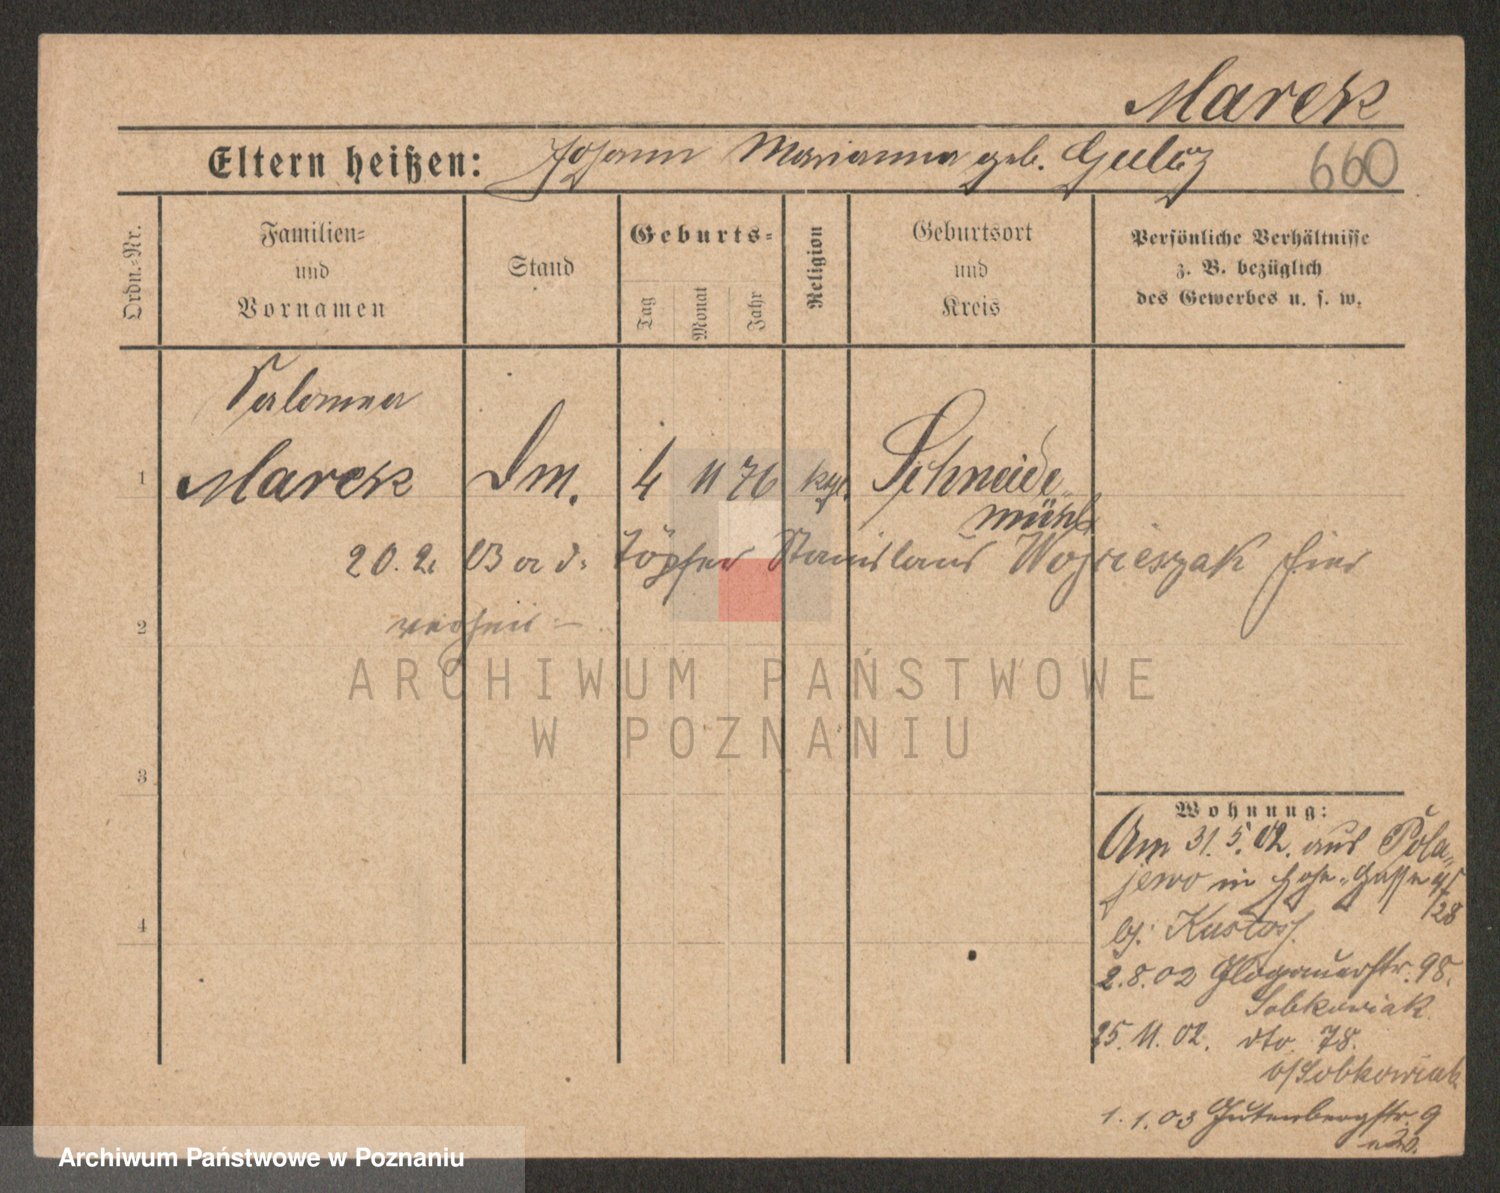 Marek
Eltern heißen: Johann Marianna geb.
660
Ordn.-Nr.
Familien- und Vornamen
Stand
Geburts-
Tag
Monat
Jahr
Religion
Geburtsort und Kreis
Persönliche Verhältnisse
z. B. bezüglich
des Gewerbes u. s. w.
Salomea
1 Marek Dm. 4 11 76 kgl. Schneide
mühl
20.2. m. d. Töpfer Stanislaus Wojcieszak hier
2 verheir –
ARCHIWUM PAŃSTWOWE
W POZNANIU
3
Wohnung:
Am 31.5.02. aus Pola-
jewo in Hohe-Gasse
4
b/.
2.8.02 Glogauerstr. 98.
Sobkowiak.
25.11.02. dto. 78.
b/Sobkowiak
1.1.03 Gutenbergstr. 9
Archiwum Państwowe w Poznaniu